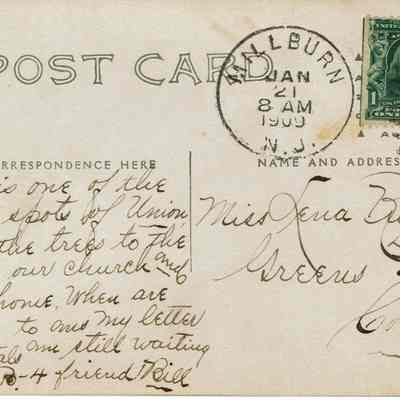 POST CARD
MILLBURN
JAN
21
8 AM
1909
N.J.
RRESPONDENCE HERE
NAME AND ADDRES
is one of the
spots of Union
the trees to the
our church and
home. When are
to ans my letter
am still waiting
-4 friend Bill
Miss Lena
Greens
Co
1